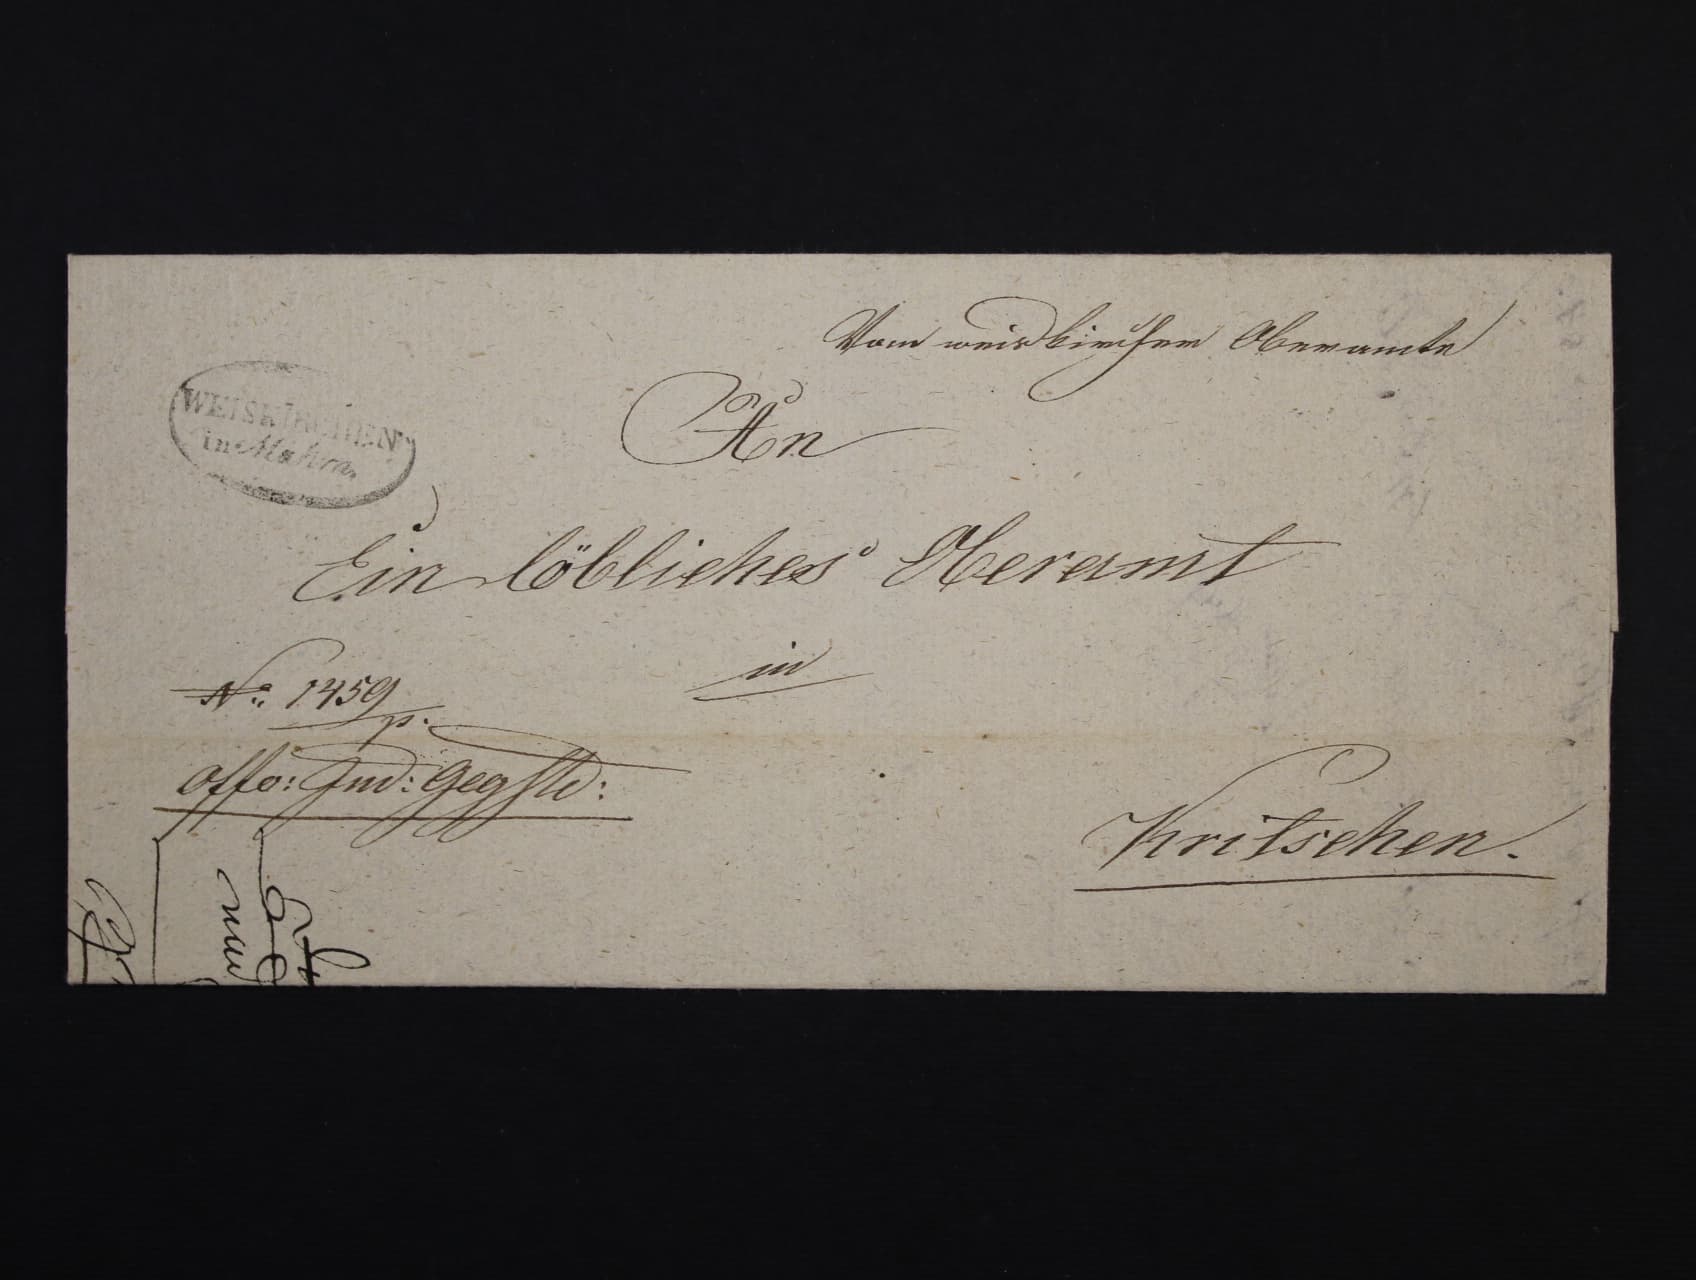 Vom weiskircher Oberamte
WEISKIRCHEN
in Mähren.
An
Ein löbliches Oberamt
in
No: 1459
p.
offo: Jud: Gegstd:
Kritschen.